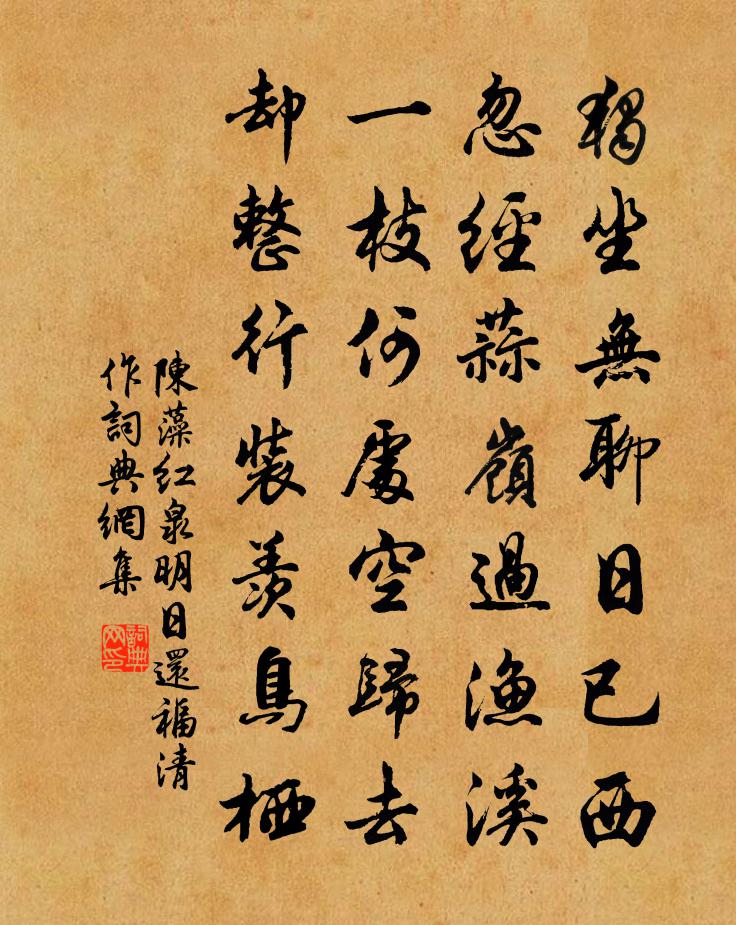 獨坐無聊日已西
忽經蒜嶺過漁溪
一枝何處空歸去
却整行裝羨鳥栖
陳藻紅泉明日還福清
作詞典網集
詞典
网印